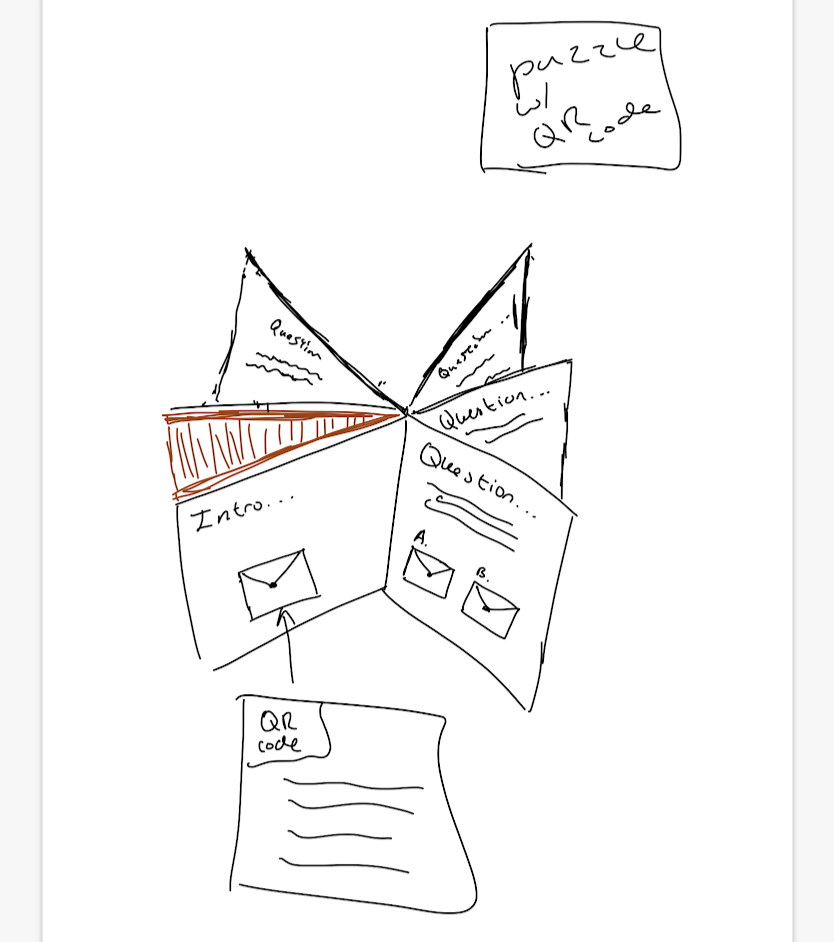 puzzle
w/
QR code
Question
Question...
Question...
Question...
Intro...
A.
B.
QR
code